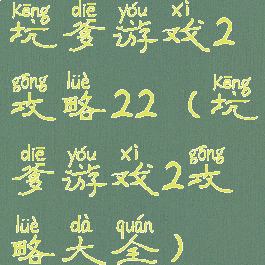 kēng diē yóu xì
坑爹游戏2
gōng lüè kēng
攻略22（坑
diē yóu xì gōng
爹游戏2攻
lüè dà quán
略大全）